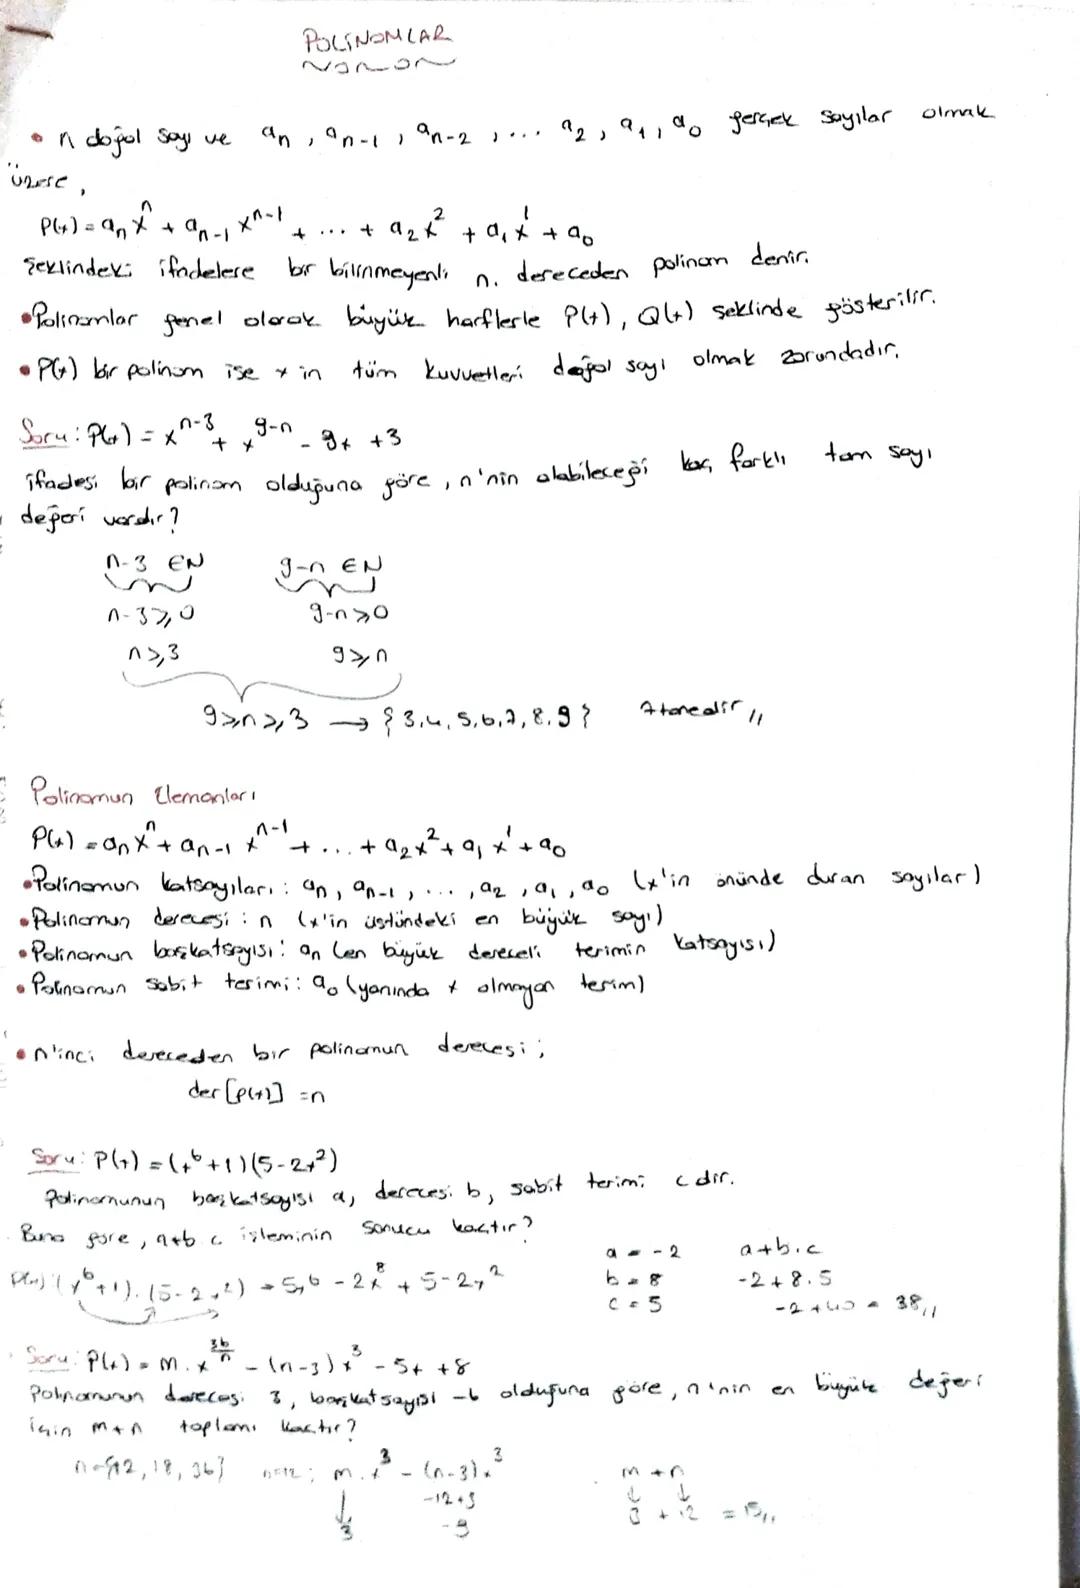 POLİNOMLAR
• n doğal sayı ve aₙ, aₙ₋₁, aₙ₋₂, ... a₂, a₁, a₀ gerçek sayılar olmak
üzere,
P(x) = aₙxⁿ + aₙ₋₁xⁿ⁻¹ + ... + a₂x² + a₁x¹ + a₀
şeklindeki ifadelere bir bilinmeyenli n. dereceden polinom denir.
• Polinomlar genel olarak büyük harflerle P(x), Q(x) şeklinde gösterilir.
• P(x) bir polinom ise x in tüm kuvvetleri doğal sayı olmak zorundadır.
Soru: P(x) = xⁿ⁻³ + x⁹⁻ⁿ - 9x + 3
ifadesi bir polinom olduğuna göre, n'nin alabileceği kaç farklı tam sayı
değeri vardır?
n-3 ∈ N 9-n ∈ N
n-3 ≥ 0 9-n ≥ 0
n ≥ 3 9 ≥ n
9 ≥ n ≥ 3 → {3,4,5,6,7,8,9} 7 tanedir //
Polinomun Elemanları
P(x) = aₙxⁿ + aₙ₋₁xⁿ⁻¹ + ... + a₂x² + a₁x¹ + a₀
• Polinomun katsayıları: aₙ, aₙ₋₁, ..., a₂, a₁, a₀ (x'in önünde duran sayılar)
• Polinomun derecesi: n (x'in üstündeki en büyük sayı)
• Polinomun başkatsayısı: aₙ (en büyük dereceli terimin katsayısı)
• Polinomun sabit terimi: a₀ (yanında x olmayan terim)
• n'inci dereceden bir polinomun derecesi;
der[P(x)] = n
Soru: P(x) = (x⁶+1)(5-2x²)
Polinomunun başkatsayısı a, derecesi b, sabit terimi c dir.
Buna göre, a+b.c işleminin sonucu kaçtır?
P(x): (x⁶+1).(5-2x²) = 5x⁶ - 2x⁸ + 5 - 2x²
a = -2 a+b.c
b = 8 -2+8.5
c = 5 -2+40 = 38 //
Soru: P(x) = m.x^(36/n) - (n-3)x³ - 5x + 8
Polinomunun derecesi 3, başkatsayısı -6 olduğuna göre, n'nin en büyük değeri
için m+n toplamı kaçtır?
n={12, 18, 36} n=12; m.x³ - (n-3)x³ m + n
-12+3
3 -9 3 + 12 = 15 //